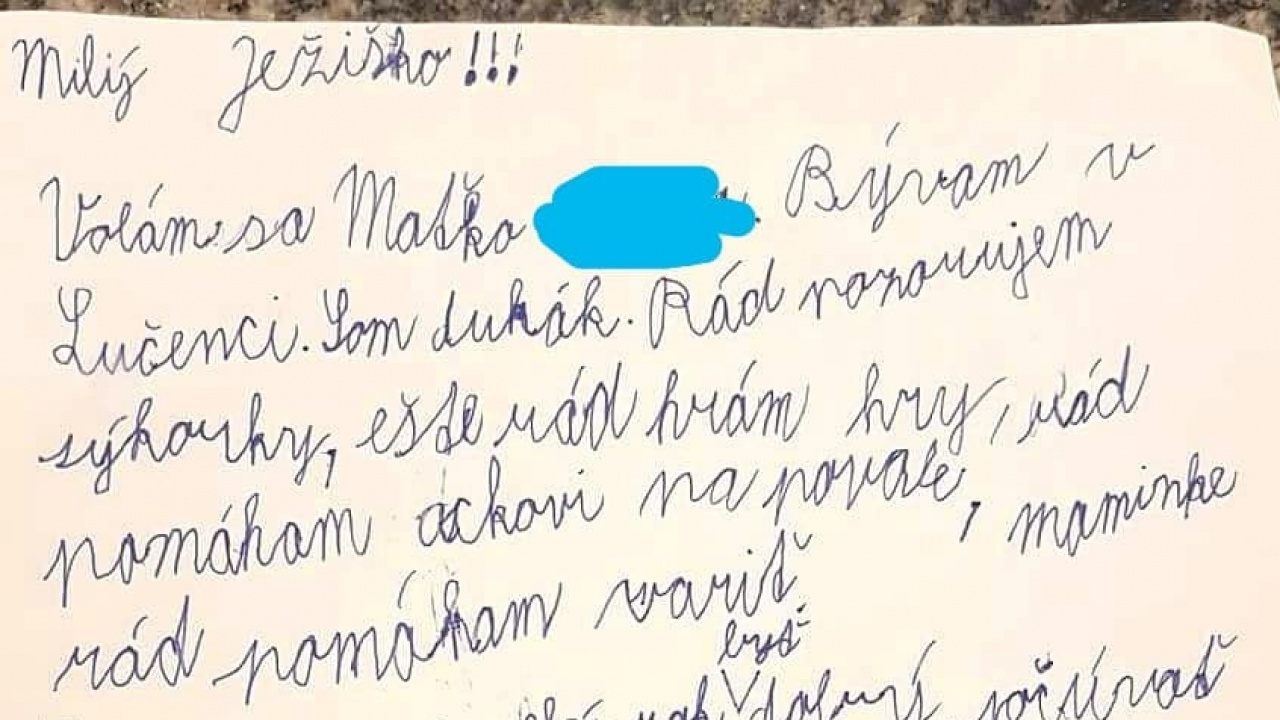 Milý Ježiško!!!
Volám sa Maťko . Bývam v
Lučenci. Som druhák. Rád pozorujem
sýkorky, ešte rád hrám hry, rád
pomáham ockovi na povale, maminke
rád pomáham variť
byť
dobrý, počúvať